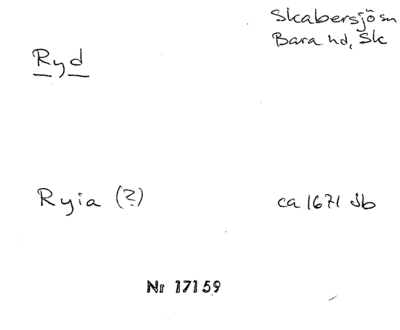 Skabersjö sn
Bara hd, Sk
Ryd
Ryia (?)
ca 1671 Jb
Nr 17159